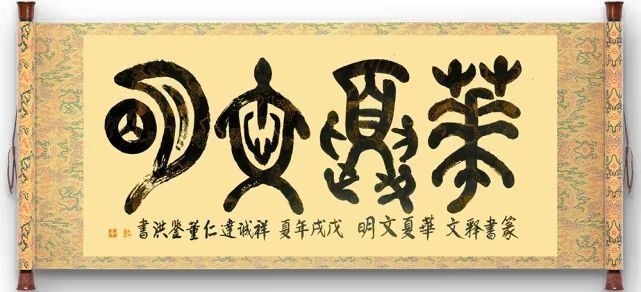 華夏文明
篆書释文 華夏文明 戊戌年夏 祥诚達仁董鉴洪書